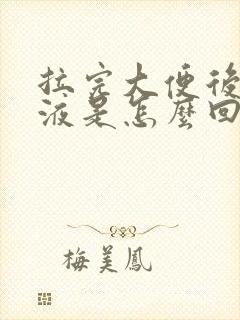 拉完大便後
液是怎麼回
梅美鳳